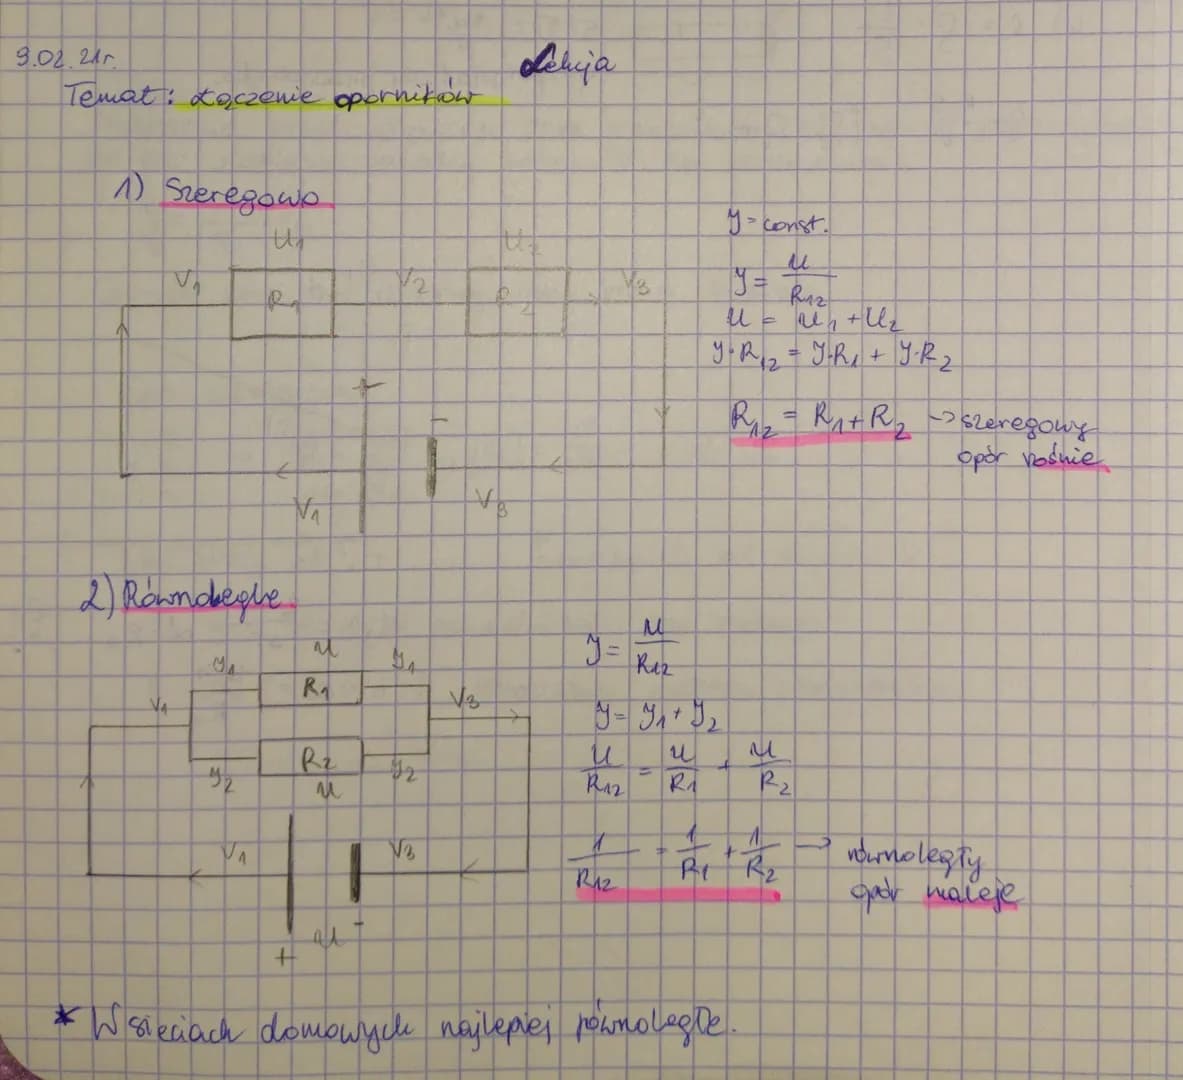 9.02.21r.
Lekcja
Temat: Łączenie oporników
1) Szeregowo
U1 U2
V1 R1 V2 R2 V3
+ -
V1 V3
y = const.
y = u/R12
U = U1 + U2
y·R12 = y·R1 + y·R2
R12 = R1 + R2 → szeregowy
opór rośnie
2) Równoległe
u
y1 R1 y1
V1 V3
y2 R2 y2
u
V1 V3
u -
+
y = u/R12
y = y1 + y2
u/R12 = u/R1 + u/R2
1/R12 = 1/R1 + 1/R2 → równoległy
opór maleje
* W sieciach domowych najlepiej równoległe.